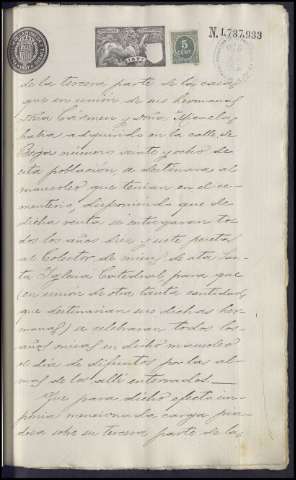 N. 1.737.933
1877
5
CENT.
de la tercera parte de las casas
que en union de sus hermanas
Doña Cármen y Doña Manuela,
habia adquirido en la calle de
numero veinte y ocho de
esta poblacion a destinaran al
mausoleo que tenian en el ce-
menterio, disponiendo que de
dicha renta se entregaran to-
dos los años diez y siete pesetas
al Colector de misas de esta San-
ta Yglesia Catedral, para que
en union de otra tanta cantidad
que destinarian sus dichas her-
manas, se celebraran todos los
años misas en dicho mausoleo
el dia de difuntos por las al-
mas de los alli enterrados.—
Que para dicho efecto im-
ponia mencionada carga pia-
dosa sobre su tercera parte de las